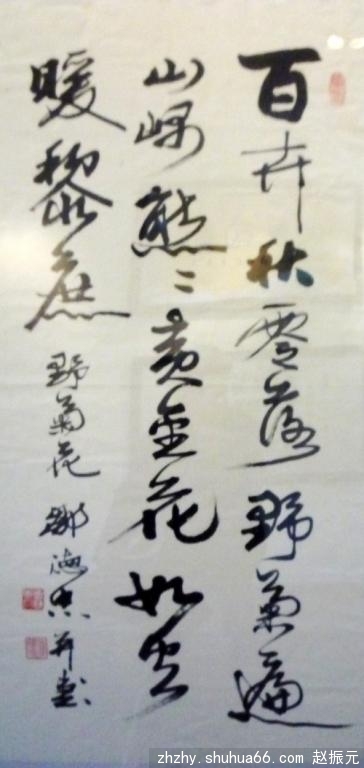 百卉秋零落野菊遍
山嵎熊々黄金花如火
暖黎庶
野菊花
zhzhy.shuhua66.com 赵振元